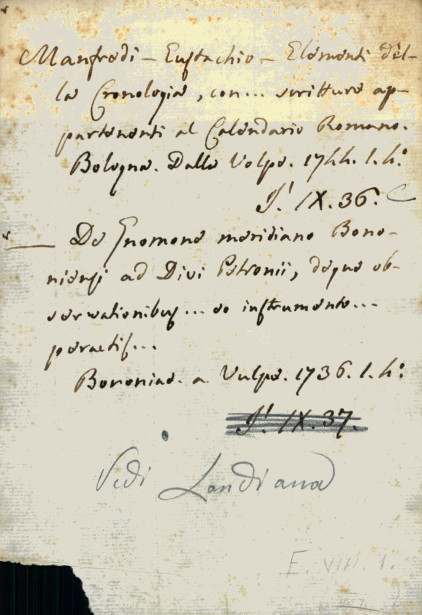 Manfredi - Eustachio - Elementi del-
la Cronologia, con... scritture ap-
partenenti al Calendario Romano.
Bologna. Dalla Volpe. 1744. 1. 4.°
J.' IX. 36. C
— De Gnomone meridiano Bono-
niensi ad Divi Petronii, deque ob-
servationibus... eo instrumento...
peractis...
Bononiae. a Vulpe. 1736. 1. 4.°
J.' IX. 37.
Vedi Landiana
E. VIII. 1.